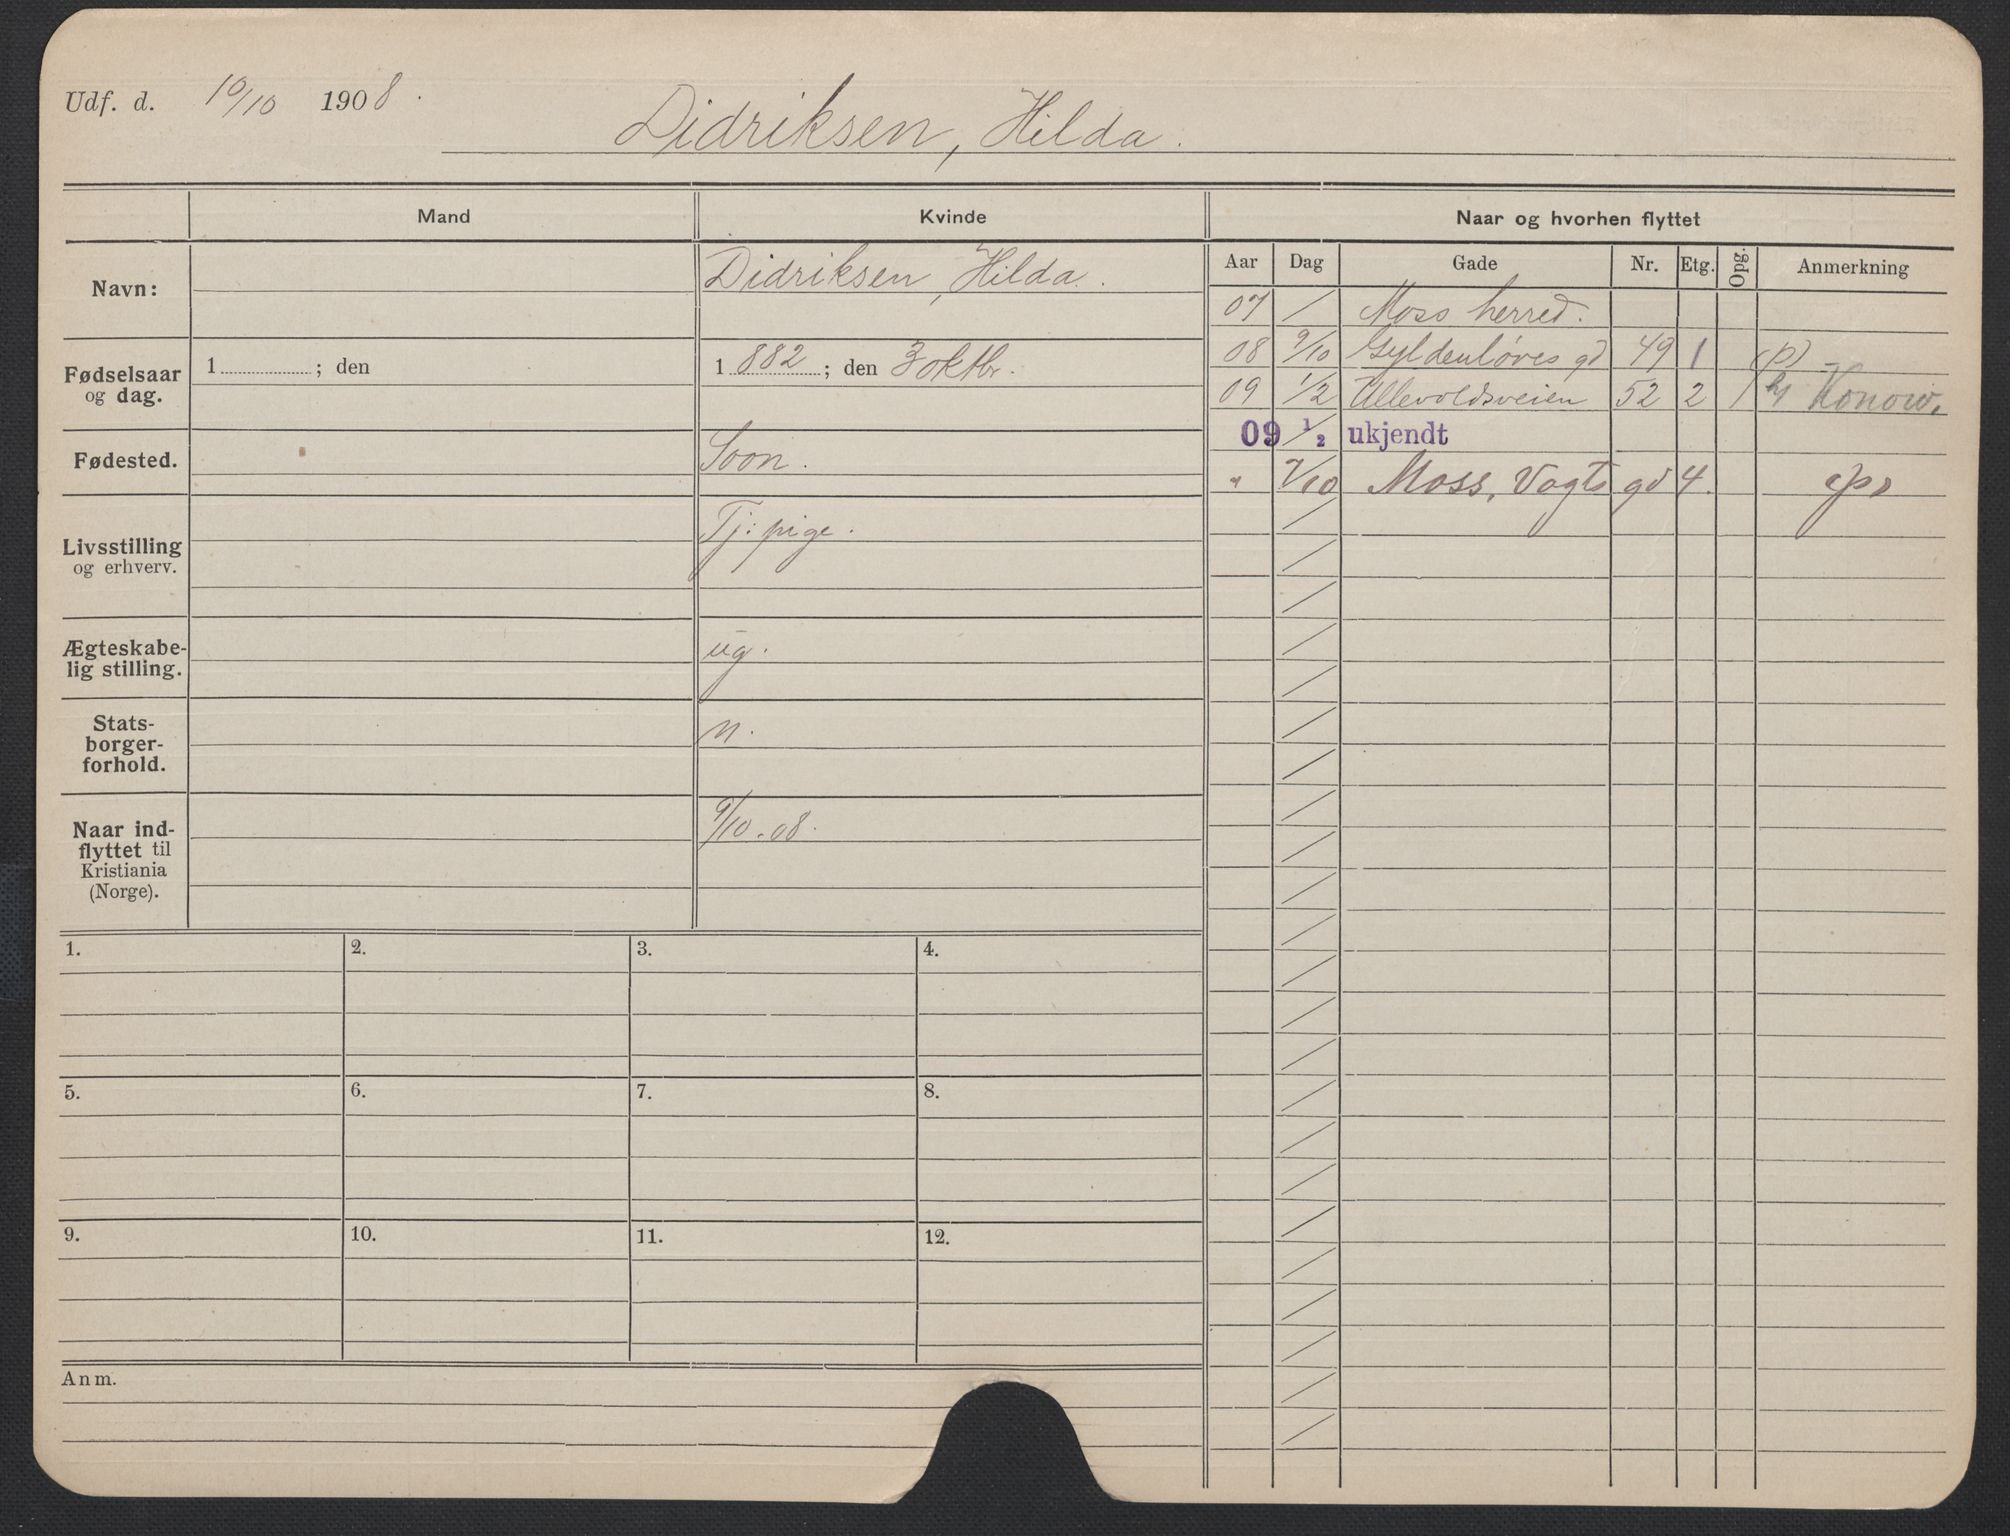 Udf. d. 10/10 1908.
Didriksen, Hilda.
Mand
Kvinde
Naar og hvorhen flyttet
Aar Dag Gade Nr. Etg. Opg. Anmerkning
Navn:
Didriksen, Hilda.
Fødselsaar
og dag.
1 ; den
1 882 ; den 3 oktbr.
Fødested.
Soon.
Livsstilling
og erhverv.
Tj: pige.
Ægteskabe-
lig stilling.
ug.
Stats-
borger-
forhold.
n.
Naar ind-
flyttet til
Kristiania
(Norge).
9/10.08.
07 / Moss herred.
08 9/10 Gyldenløves gd 49 1 (p)
09 1/2 Ullevoldsveien 52 2 / Konow.
09 1/2 ukjendt
" 7/10 Moss, Vogts gd 4. (p)
1. 2. 3. 4.
5. 6. 7. 8.
9. 10. 11. 12.
Anm.